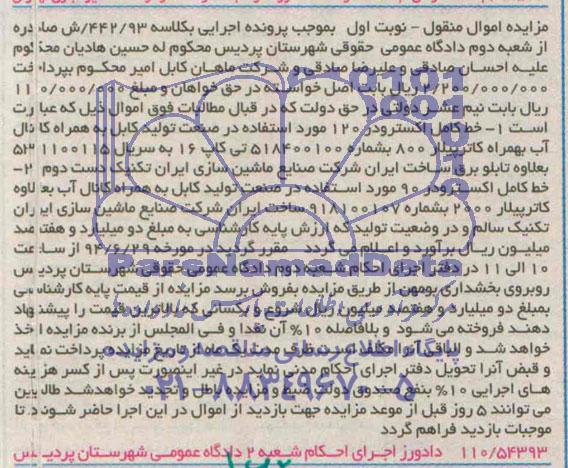 مزایده اموال منقول – نوبت اول بموجب پرونده اجرایی بکلاسه ۴۴۲/۹۳/ش صادره
از شعبه دوم دادگاه عمومی حقوقی شهرستان پردیس محکوم له حسین هادیان محکوم
علیه احسان صادقی و علیرضا صادقی و شرکت ماهان کابل امیر محکوم بپرداخت
۲/۲۰۰/۰۰۰/۰۰۰ ریال بابت اصل خواسته در حق خواهان و مبلغ ۱۱۰/۰۰۰/۰۰۰
ریال بابت نیم عشر دولتی در حق دولت که در قبال مطالبات فوق اموال ذیل که عبارت
است ۱- خط کامل اکسترودر ۱۲۰ مورد استفاده در صنعت تولید کابل به همراه کانال
آب بهمراه کاترپیلار ۸۰۰ بشماره ۵۱۸۴۰۰۱۰۰ تی کاپ ۱۶ به سریال ۵۳۱۱۰۰۱۱۵
بعلاوه تابلو برق ساخت ایران شرکت صنایع ماشین سازی ایران تکنیک دست دوم ۲-
خط کامل اکسترودر ۹۰ مورد استفاده در صنعت تولید کابل به همراه کانال آب بعلاوه
کاترپیلار ۲۰۰۰ بشماره ۹۱۸۱۰۰۱۰۷ ساخت ایران شرکت صنایع ماشین سازی ایران
تکنیک سالم و در وضعیت تولید که ارزش پایه کارشناسی به مبلغ دو میلیارد و هفتصد
میلیون ریال برآورد و اعلام می گردد مقرر گردید در مورخه ۹۴/۶/۲۹ از ساعت
۱۰ الی ۱۱ در دفتر اجرای احکام شعبه دوم دادگاه عمومی حقوقی شهرستان پردیس
روبروی بخشداری بومهن از طریق مزایده بفروش برسد مزایده از قیمت پایه کارشناسی
بمبلغ دو میلیارد و هفتصد میلیون ریال شروع و بکسانی که بالاترین قیمت را پیشنهاد
دهند فروخته می شود و بلافاصله ۱۰% آن نقدا و فی المجلس از برنده مزایده اخذ
خواهد شد و الباقی ظرف مدت یک ماه از تاریخ مزایده پرداخت نماید
و قبض آنرا تحویل دفتر اجرای احکام مدنی نماید در غیر اینصورت پس از کسر هزینه
های اجرایی ۱۰% بنفع صندوق دولت ضبط و مزایده باطل و تجدید خواهد شد طالبین
می توانند ۵ روز قبل از موعد مزایده جهت بازدید از اموال در این اجرا حاضر شوند تا
موجبات بازدید فراهم گردد
۱۱۰/۵۴۳۹۳ دادورز اجرای احکام شعبه ۲ دادگاه عمومی شهرستان پردیس
ParsNamadData
پایگاه اطلاع رسانی مناقصه و مزایده
۰۲۱-۸۸۳۴۹۶۷۰-۵